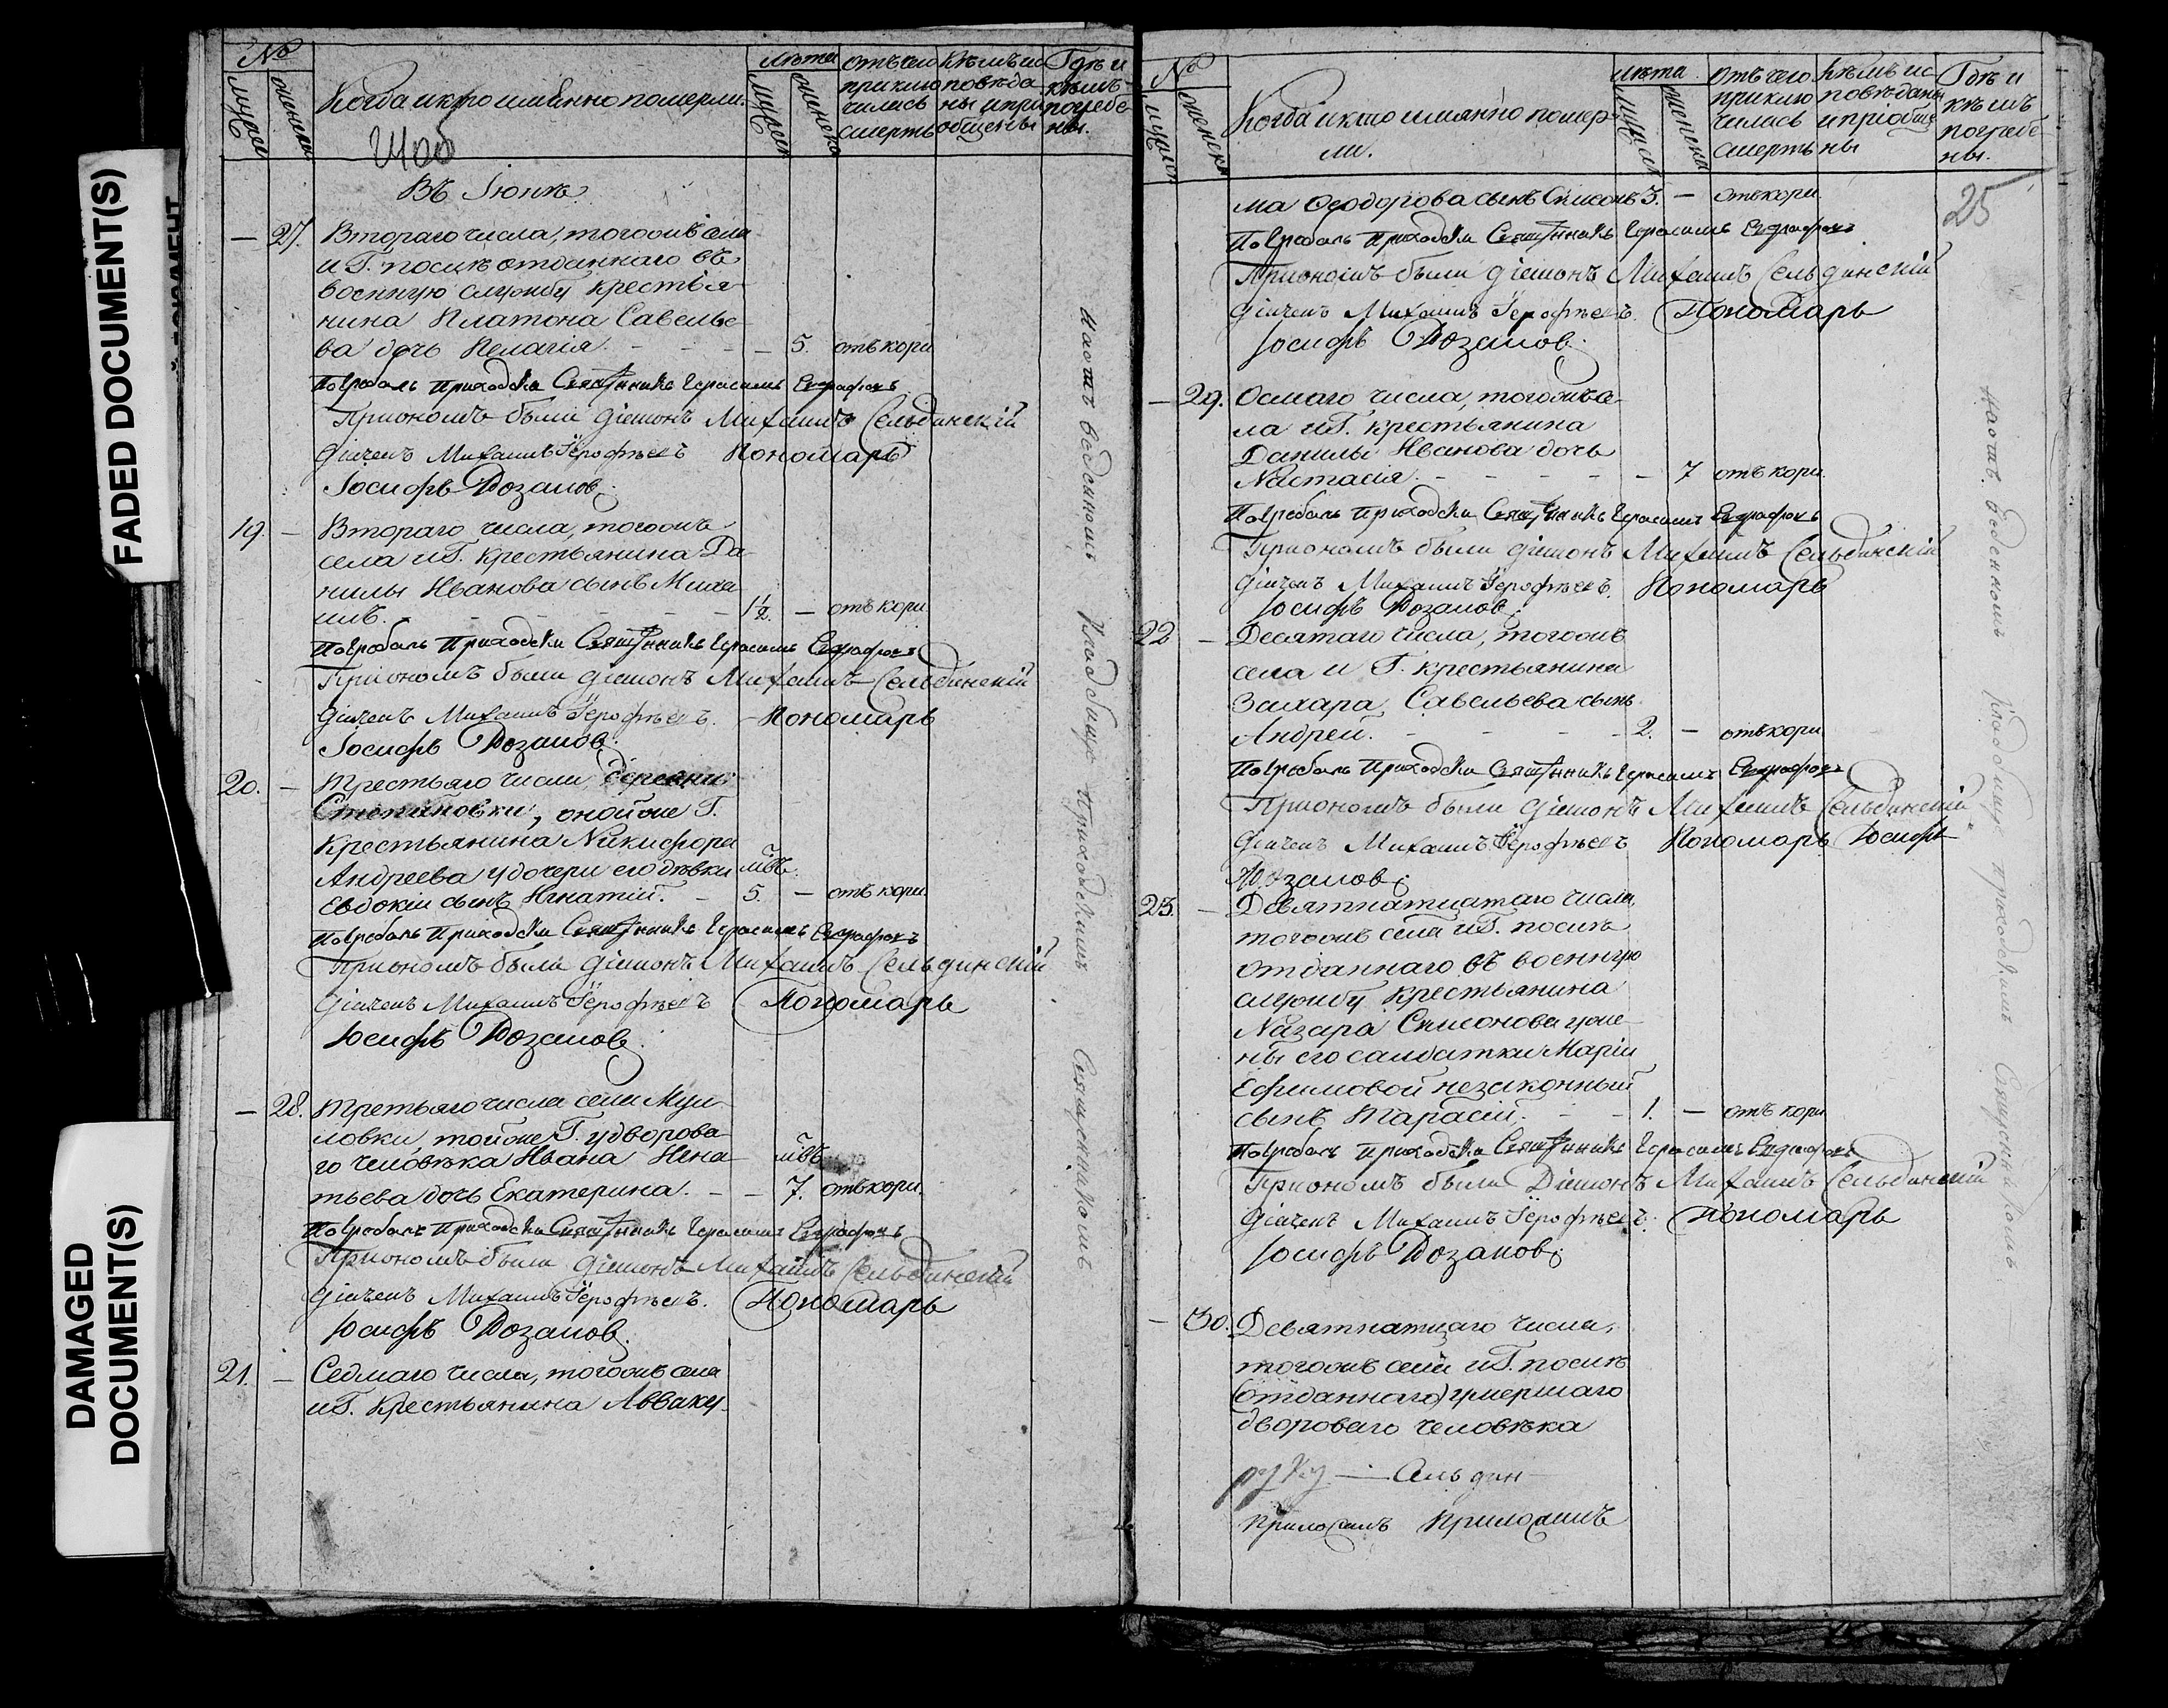 FADED DOCUMENT(S)
DAMAGED
DOCUMENT(S)
№
мужеск
женска
Когда и кто имянно померли.
лѣта
мужеск
женска
отъ чего
приклю
чилась
смерть
Кѣмъ ис
повѣда
ны и прі
общены
Гдѣ и
кѣмъ
погребе
ны.
Въ Іюнѣ.
— 27. Втораго числа, тогожъ села
и Г. послѣ отданнаго въ
военную службу крестья
нина Платона Савелье
ва дочь Пелагія. — 5. отъ кори
Погребалъ Приходски Священникъ Герасимъ
При ономъ были діаконъ Михаилъ Сельдинскій
Дьячекъ Михаилъ Іерофѣевъ Пономарь
Іосифъ Розановъ.
19. — Втораго числа, тогожъ
села и Г. Крестьянина Да
нилы Иванова сынъ Миха
илъ. 1½. — отъ кори.
Погребалъ Приходски Священникъ Герасимъ
При ономъ были діаконъ Михаилъ Сельдинскій
Дьячекъ Михаилъ Іерофѣевъ. Пономарь
Іосифъ Розановъ.
20. — Третьяго числа, деревни
Степановки, онойже Г.
Крестьянина Никифора
Андреева у дочери его дѣвки
Евдокіи сынъ Игнатій. 5. — отъ кори.
Погребалъ Приходски Священникъ Герасимъ
При ономъ были діаконъ Михаилъ Сельдинскій
Дьячекъ Михаилъ Іерофѣевъ Пономарь
Іосифъ Розановъ.
— 28. Третьяго числа села
ловки тойже Г. у дворова
го человѣка Ивана Игна
тьева дочь Екатерина. — 7. отъ кори.
Погребалъ Приходски Священникъ Герасимъ
При ономъ были діаконъ Михаилъ Сельдинскій
Дьячекъ Михаилъ Іерофѣевъ. Пономарь
Іосифъ Розановъ.
21. — Седмаго числа, тогожъ села
и Г. Крестьянина Авваку
На отведенномъ кладбищѣ приходскимъ Священникомъ
№
мужеск
женска
Когда и кто имянно помер
ли.
лѣта
мужеск
женска
отъ чего
приклю
чилась
смерть
Кѣмъ ис
повѣданы
и пріобще
ны
Гдѣ и
кѣмъ
погребе
ны.
25
ма Ѳеодорова сынъ Симеонъ 3. — отъ кори.
Погребалъ Приходски Священникъ Герасимъ
При ономъ были діаконъ Михаилъ Сельдинскій
Дьячекъ Михаилъ Іерофѣевъ. Пономарь
Іосифъ Розановъ.
— 29. Осмаго числа, тогожъ се
ла и Г. крестьянина
Данилы Иванова дочь
Настасія. — 7 отъ кори.
Погребалъ Приходски Священникъ Герасимъ
При ономъ были діаконъ Михаилъ Сельдинскій
Дьячекъ Михаилъ Іерофѣевъ. Пономарь
Іосифъ Розановъ.
22 — Десятаго числа, тогожъ
села и Г. крестьянина
Захара Савельева сынъ
Андрей. 2. — отъ кори
Погребалъ Приходски Священникъ Герасимъ
При ономъ были діаконъ Михаилъ Сельдинскій
Дьячекъ Михаилъ Іерофѣевъ Пономарь Іосифъ
Розановъ.
23. — Девятнатцатаго числа
тогожъ села и Г. послѣ
отданнаго въ военную
службу крестьянина
Назара Симонова у же
ны его салдатки Маріи
Ефимовой незаконный
сынъ Тарасій. 1. — отъ кори
Погребалъ приходски Священникъ Герасимъ
При ономъ были Діаконъ Михаилъ Сельдинскій
Дьячекъ Михаилъ Іерофѣевъ. Пономарь
Іосифъ Розановъ.
— 30. Девятнатцаго числа,
тогожъ села и Г. послѣ
(отданнаго) умершаго
двороваго человѣка
руку
приложилъ приложилъ
на отведенномъ кладбищѣ приходскимъ Священникомъ